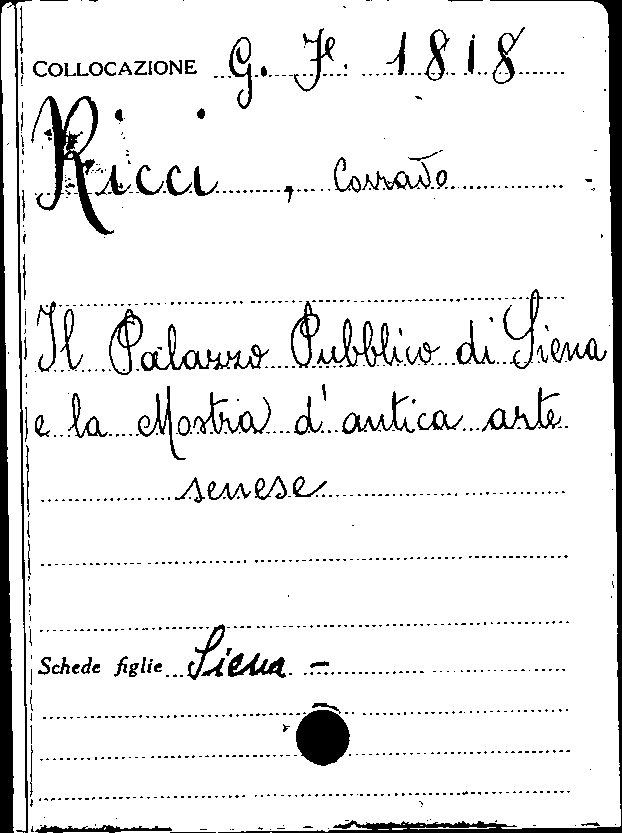 COLLOCAZIONE G. F. 1818
Ricci, Corrado
Il Palazzo Pubblico di Siena
e la Mostra d'antica arte
senese
Schede figlie Siena -